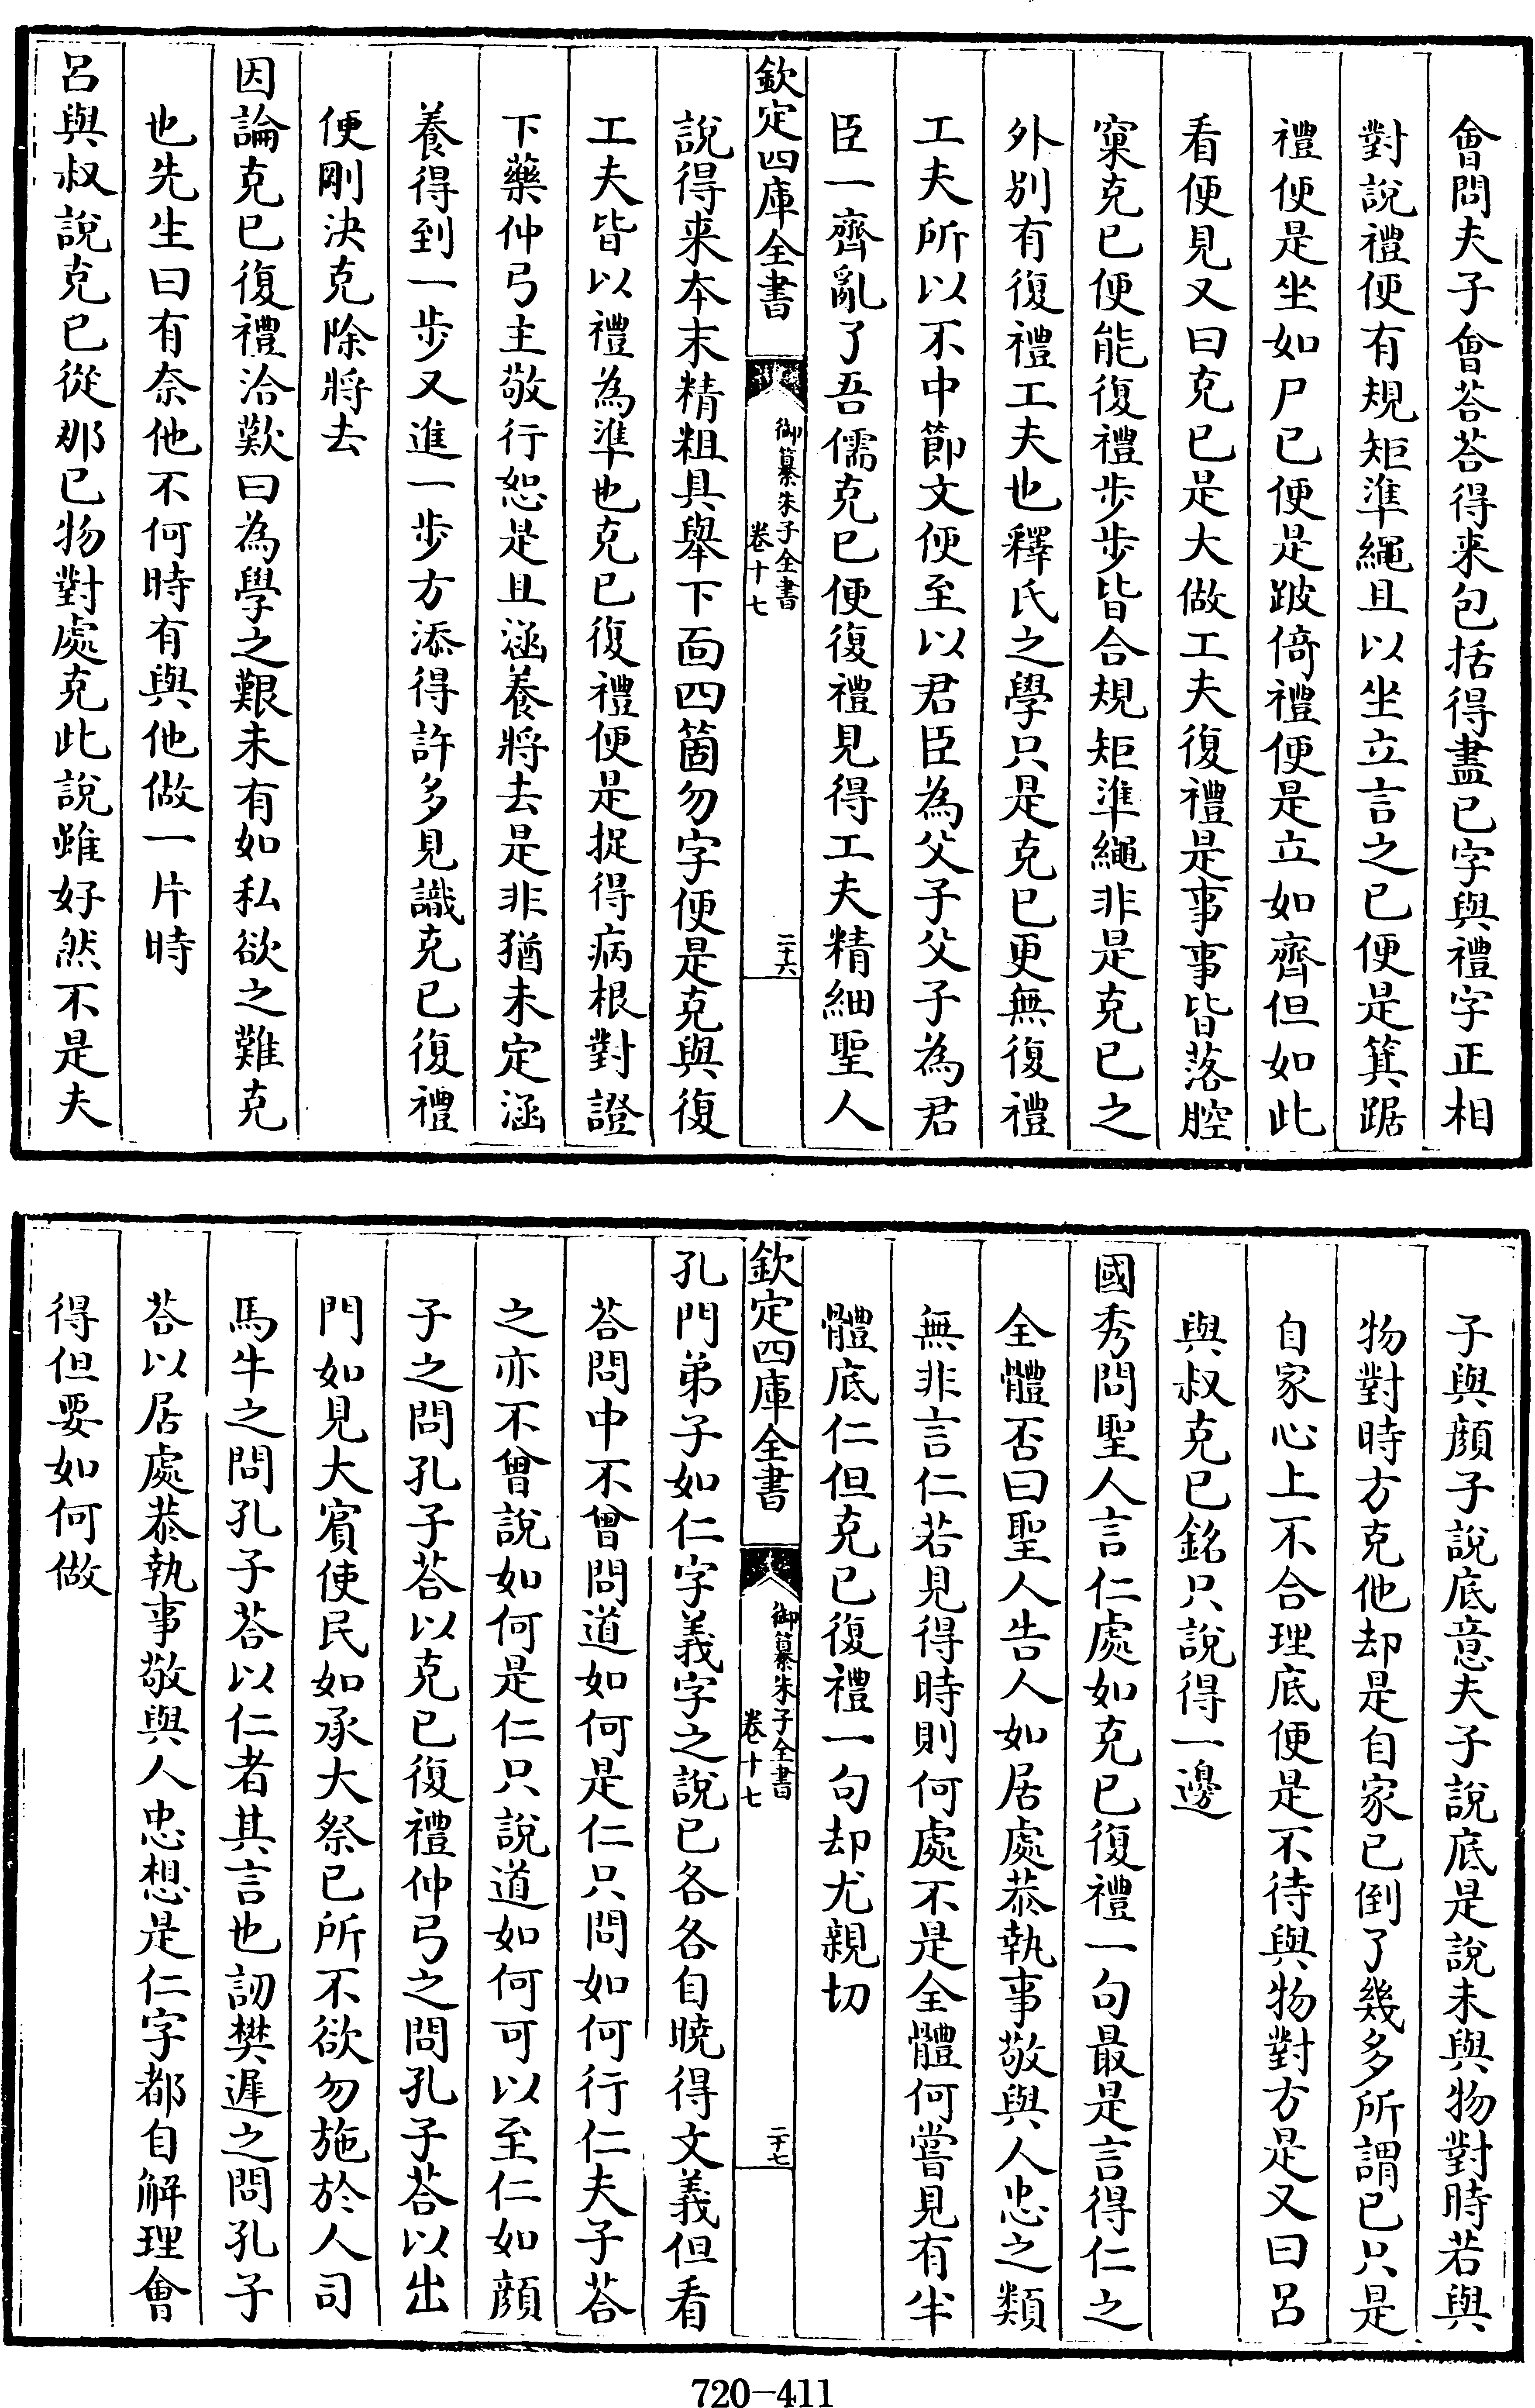 會問夫子會荅荅得来包括得盡已字與禮字正相
對說禮便有規矩準繩且以坐立言之已便是箕踞
禮便是坐如尸已便是跛倚禮便是立如齊但如此
看便見又曰克已是大做工夫復禮是事事皆落腔
窠克已便能復禮步步皆合規矩準繩非是克已之
外別有復禮工夫也釋氏之學只是克已更無復禮
工夫所以不中節文便至以君臣為父子父子為君
臣一齊亂了吾儒克已便復禮見得工夫精細聖人
欽定四庫全書
御纂朱子全書
卷十七
二十六
說得来本末精粗具舉下面四箇勿字便是克與復
工夫皆以禮為準也克已復禮便是捉得病根對證
下藥仲弓主敬行恕是且涵養將去是非猶未定涵
養得到一步又進一步方添得許多見識克已復禮
便剛決克除將去
因論克已復禮洽歎曰為學之艱未有如私欲之難克
也先生曰有奈他不何時有與他做一片時
呂與叔說克已從那已物對處克此說雖好然不是夫
子與顔子說底意夫子說底是說未與物對時若與
物對時方克他却是自家已倒了幾多所謂已只是
自家心上不合理底便是不待與物對方是又曰呂
與叔克已銘只說得一邊
國秀問聖人言仁處如克已復禮一句最是言得仁之
全體否曰聖人告人如居處恭執事敬與人忠之類
無非言仁若見得時則何處不是全體何嘗見有半
體底仁但克已復禮一句却尤親切
欽定四庫全書
御纂朱子全書
卷十七
二十七
孔門弟子如仁字義字之說已各各自曉得文義但看
荅問中不曾問道如何是仁只問如何行仁夫子荅
之亦不曾說如何是仁只說道如何可以至仁如顔
子之問孔子荅以克已復禮仲弓之問孔子荅以出
門如見大賓使民如承大祭已所不欲勿施於人司
馬牛之問孔子荅以仁者其言也訒樊遲之問孔子
荅以居處恭執事敬與人忠想是仁字都自解理會
得但要如何做
720-411